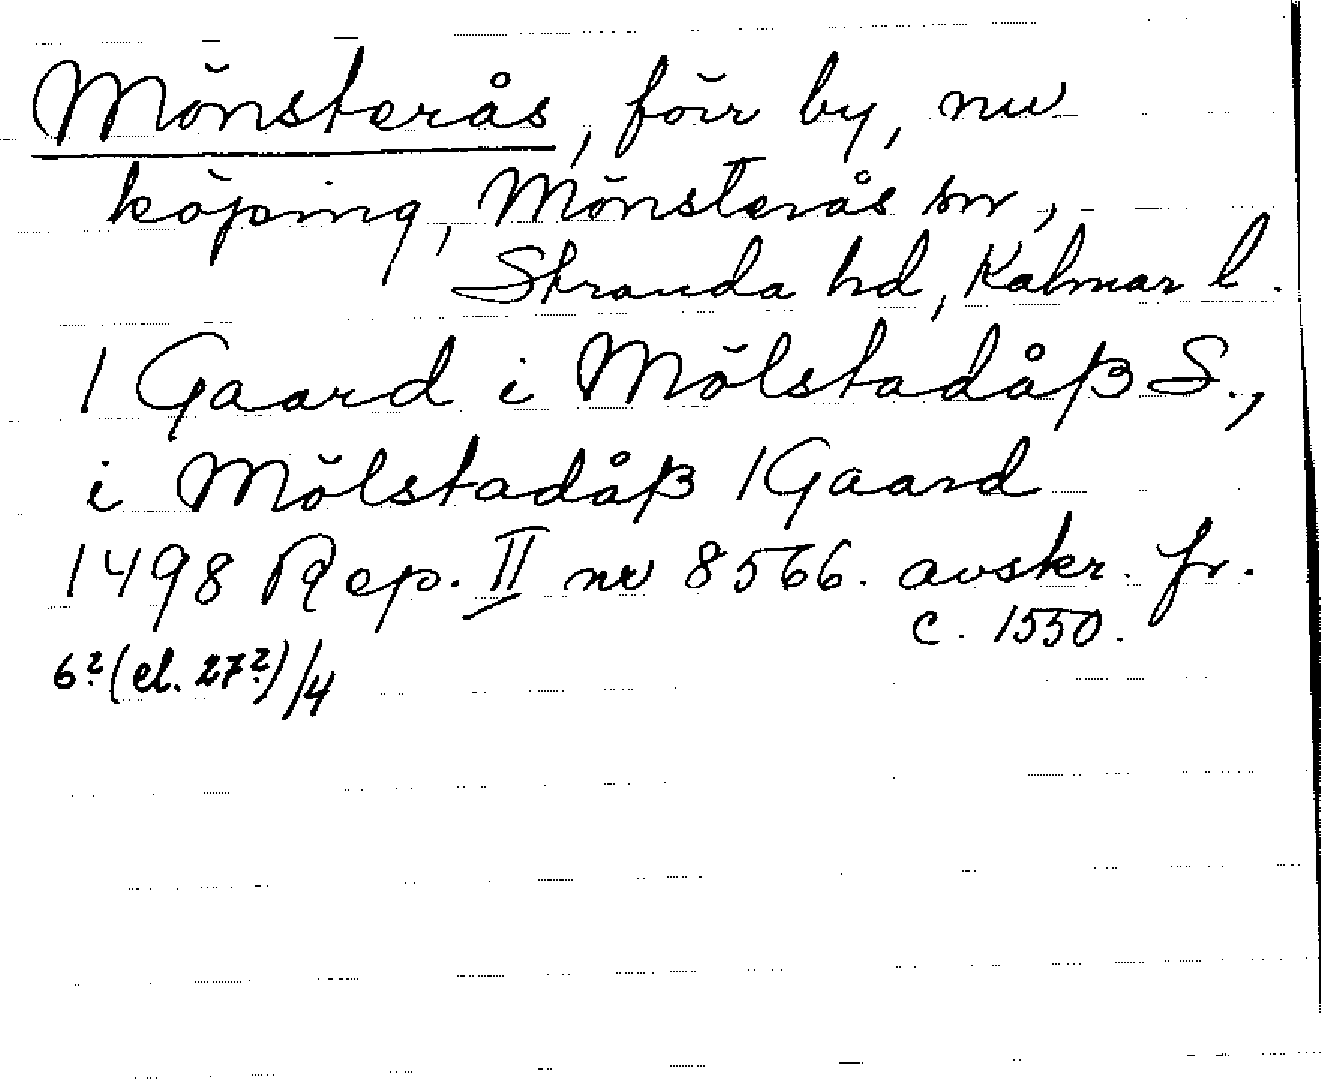 Mönsterås, förr by, nu
köping, Mönsterås sn,
Stranda hd, Kalmar l.
1 Gaard i Mölstadåß S.,
i Mölstadåß 1 Gaard
1498 Rep. II nr 8566. avskr. fr.
c. 1550.
6? (el. 27?)/4